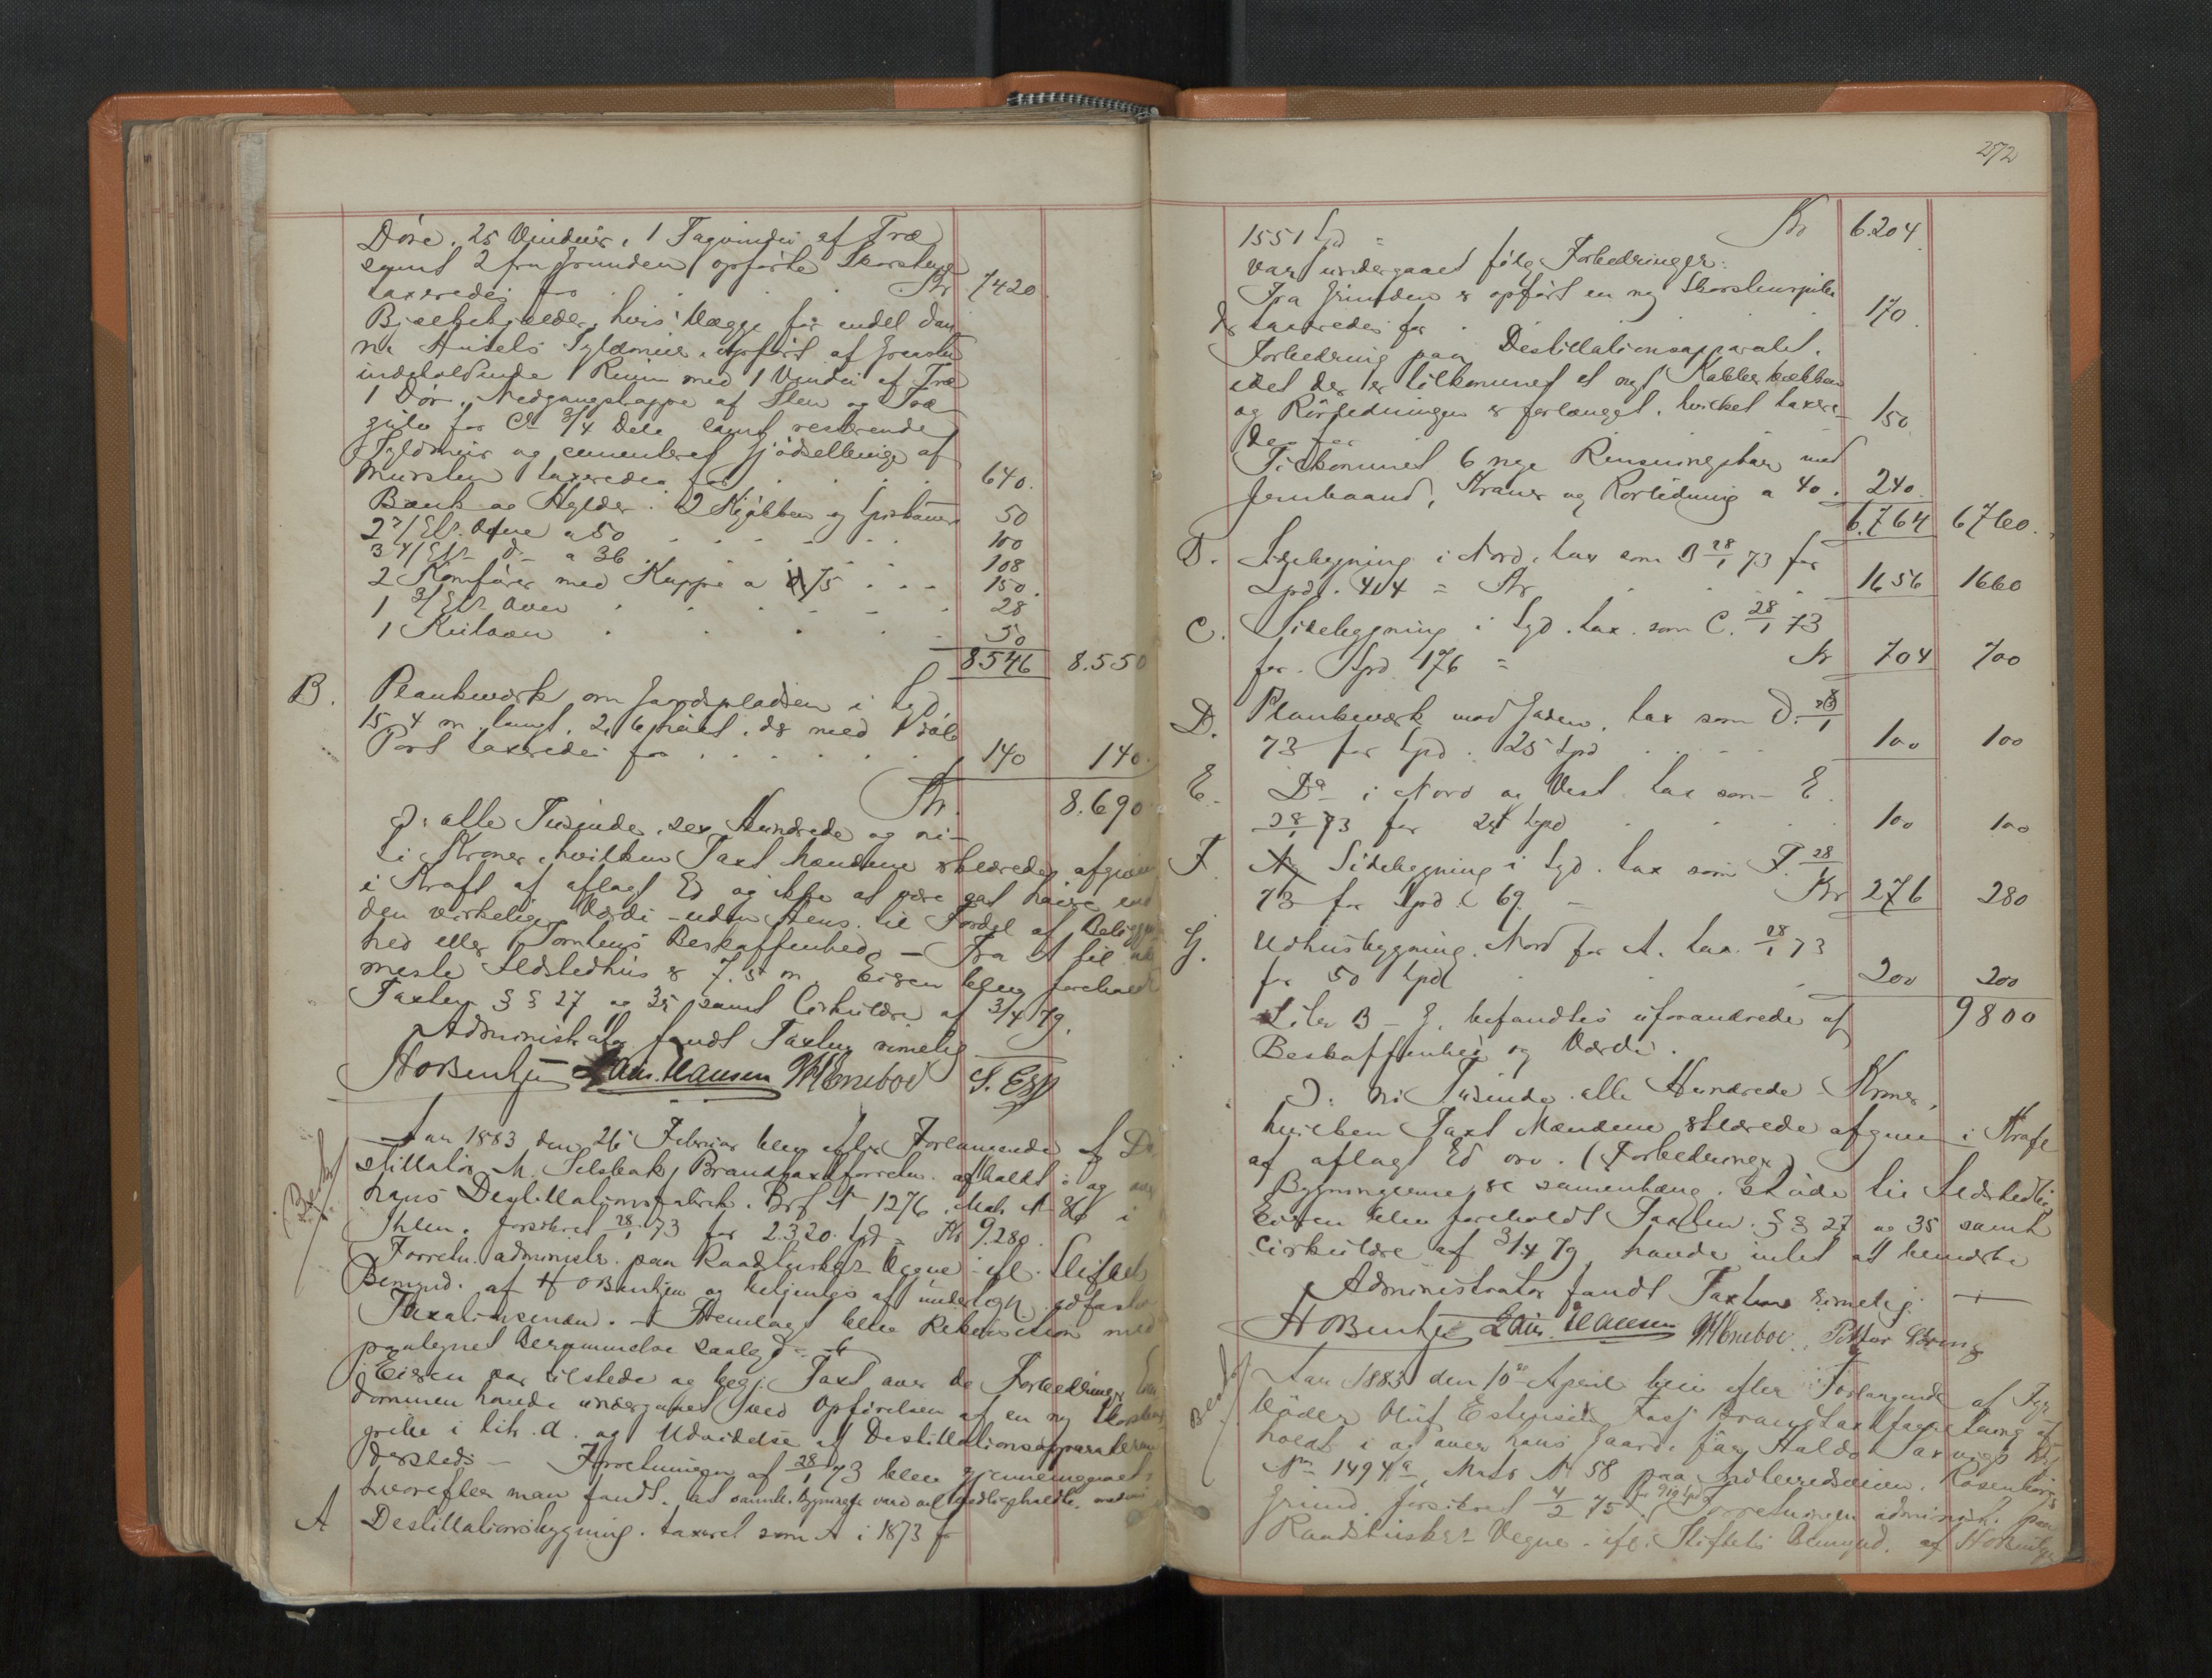 Döre, 25 Vinduer, 1 Tagvindu af Træ
samt 2 fra Grunden opförte Skorstene
taxeredes for . . . Kr 7420
Bjælkekjælder, hvis Vægge for endel dan
ne Husets Fyldmur, opfört af Graasten
indeholdende 1 Rum med 1 Vindu af Træ
1 Dör, Nedgangstrappe af Sten og Træ
gulv for Ca 3/4 Dele samt resterende
Fyldmur og cementeret af
Mursten taxeredes for . . . 640.
Bænk og Hylder. 2 og 50
2 2/Etr. Ovne a 50 . . . 100
3 4/Etr do a 36 . . . 108
2 Komfurer med Kappe a 75 . . . 150.
1 3/Etr Oven . . . 28
1 . . . 50
8546 8.550
B. Plankeværk om Gaardspladsen i Syd
15,4 m. langt, 2,6 höit, der med Port
Port taxeredes for . . . 140 140.
Kr. 8.690
ɔ: otte Tusinde, sex Hundrede og nit-
ti Kroner, hvilken Taxt Mændene erklærede afgiven
i Kraft af aflagt Ed og ikke at være sat höiere end
den virkelige Værdi - uden Hens. til Fordel af Beliggen
hed eller Tomtens Beskaffenhed. - Fra A til
næste Ildstedhus er 7.5 m. Eieren blev foreholdt
Taxtlov §§ 27 og 35 samt Cirkulære af 3/4 79.
Administrator fandt Taxten rimelig
HOBentzen Laur. Hansen S. Esp
Aar 1883 den 26 Februar blev efter Forlangende af De
stillatör M. Selsbak, Brandtaxtforretn. afholdt i og over
hans Destillationsfabrik. Brf No 1276, Mat. No 86 i
Ihlen, forsikret 28/1 73 for 2320 Spd = Kr 9.280.
Forretn. administr. paa Raadstuskr. Vegne ifl. Stiftets
Bemynd. af HOBentzen og betjentes af undertegn. edfæstede
Taxationsmænd. - Fremlagt blev Rekvisition med
paategnet Berammelse saalyd.
Eieren var tilstede og begj. Taxt over de Forbedringer Eien
dommen havde undergaaet ved Opförelsen af en ny Skorstens
pibe i Litr. A. og Udvidelse af Destillationsapparaterne
dersteds - Forretningen af 28/1 73 blev gjennemgaaet,
hvorefter man fandt, at samtl. Bygninger vare vel vedligeholdte,
A Destillationsbygning. taxeret som A i 1873 for
272
1551 Spd = Kr 6.204.
var undergaaet fölg. Forbedringer:
Fra Grunden er opfört en ny Skorstenspibe
der taxeredes for . . . 170.
Forbedring paa Destillationsapparatet,
idet der er tilkommet et nyt
og Rörledningen er forlænget, hvilket taxere-
des for 150
Tilkommet 6 nye Rensningskar med
Jernbaand, Kraner og Rörledning a 40. 240.
6.764 6760.
B. Sidebygning i Nord, tax som B 28/1 73 for
Spd. 414 = Kr 1656 1660
C. Sidebygning i Syd. tax. som C. 28/1 73
for Spd 176 = Kr 704 700
D. Plankeværk mod Gaden, tax som D. 28/1
73 for Spd. 25 Spd . . . 100 100
E. Do i Nord og Vest tax som E.
28/1 73 for 25 Spd . . . 100 100
F. Sidebygning i Syd. tax som F. 28/1
73 for Spd 69 = Kr 276 280
G. Udhusbygning. Nord for A. tax. 28/1 73
for 50 Spd . 200 200
9800
Liter B - G. befandtes uforandrede af
Beskaffenhed og Værdi.
ɔ: ni Tusinde otte Hundrede Kroner,
hvilken Taxt Mændene erklærede afgiven i Kraft
af aflagt Ed osv. (Forbedringer)
Bygningerne er sammenhæng.
Eieren blev foreholdt Taxtlov. §§ 27 og 35 samt
Cirkulære af 3/4 79, havde intet at bemærke
Administrator fandt Taxten rimelig.
HOBentzen Laur. Hansen
Aar 1883 den 10de April blev efter Forlangende af Fyr
böder Oluf Brandtaxtforretning af
holdt i og over hans Gaard, Brf
No 1494a, Matr No 58 paa Rosenborgs
Grund, forsikret 4/2 75 for 910 Spd. Forretningen administr. paa
Raadstuskr. Vegne ifl. Stiftets Bemynd. af HOBentzen